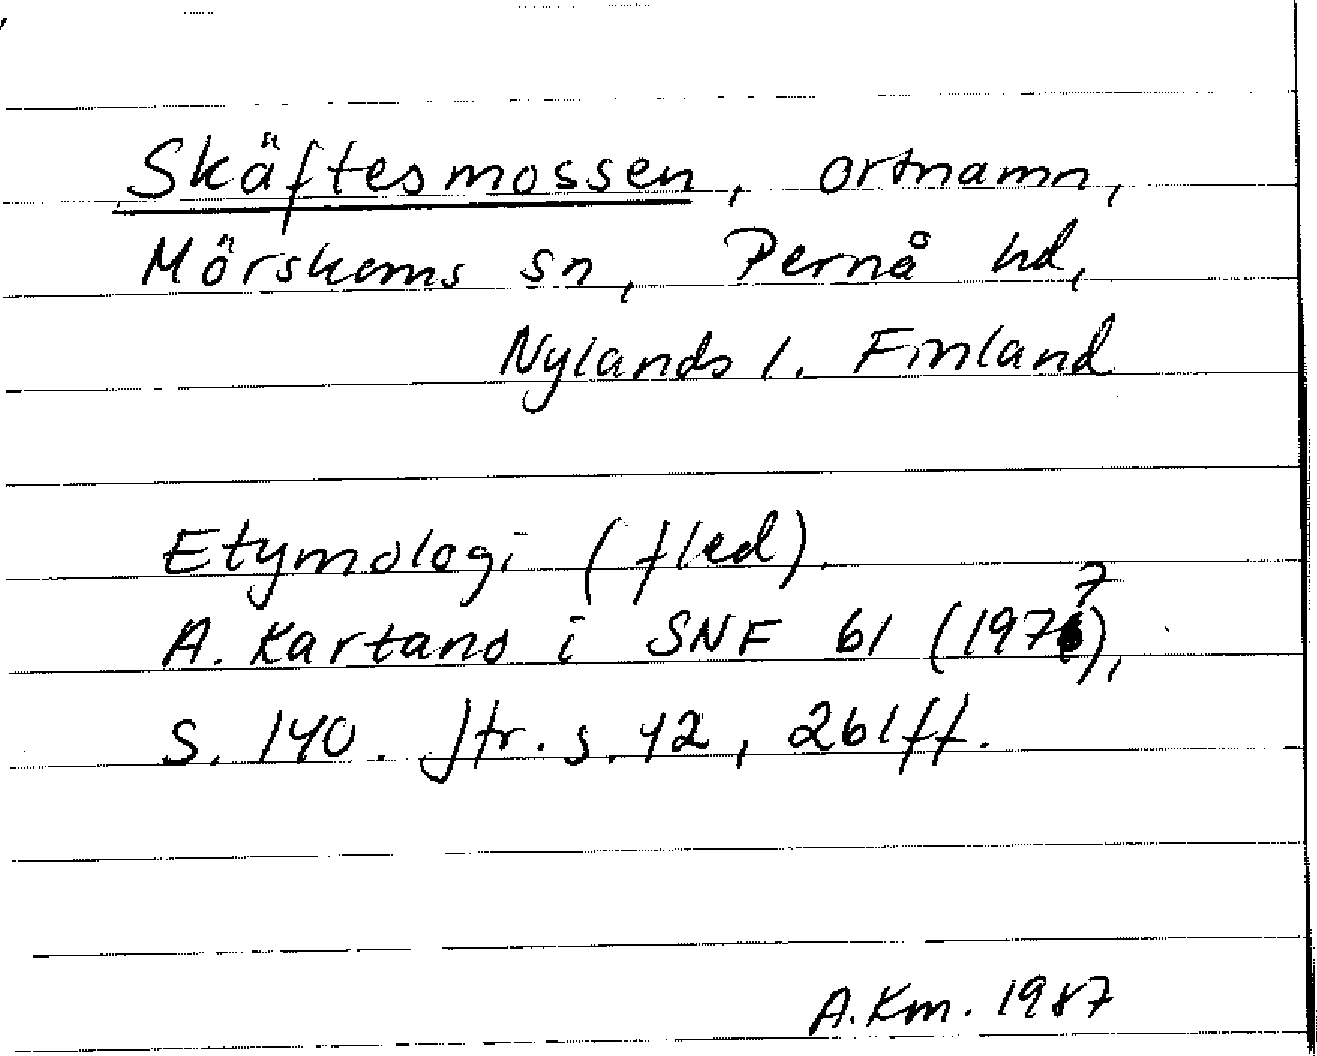 Skäftesmossen, ortnamn,
Mörskoms sn, Pernå hd,
Nylands l. Finland
Etymologi (fled).
A. Kartano i SNF 61 (1977),
s. 140. Jfr. s. 42, 261ff.
A.Km. 1987